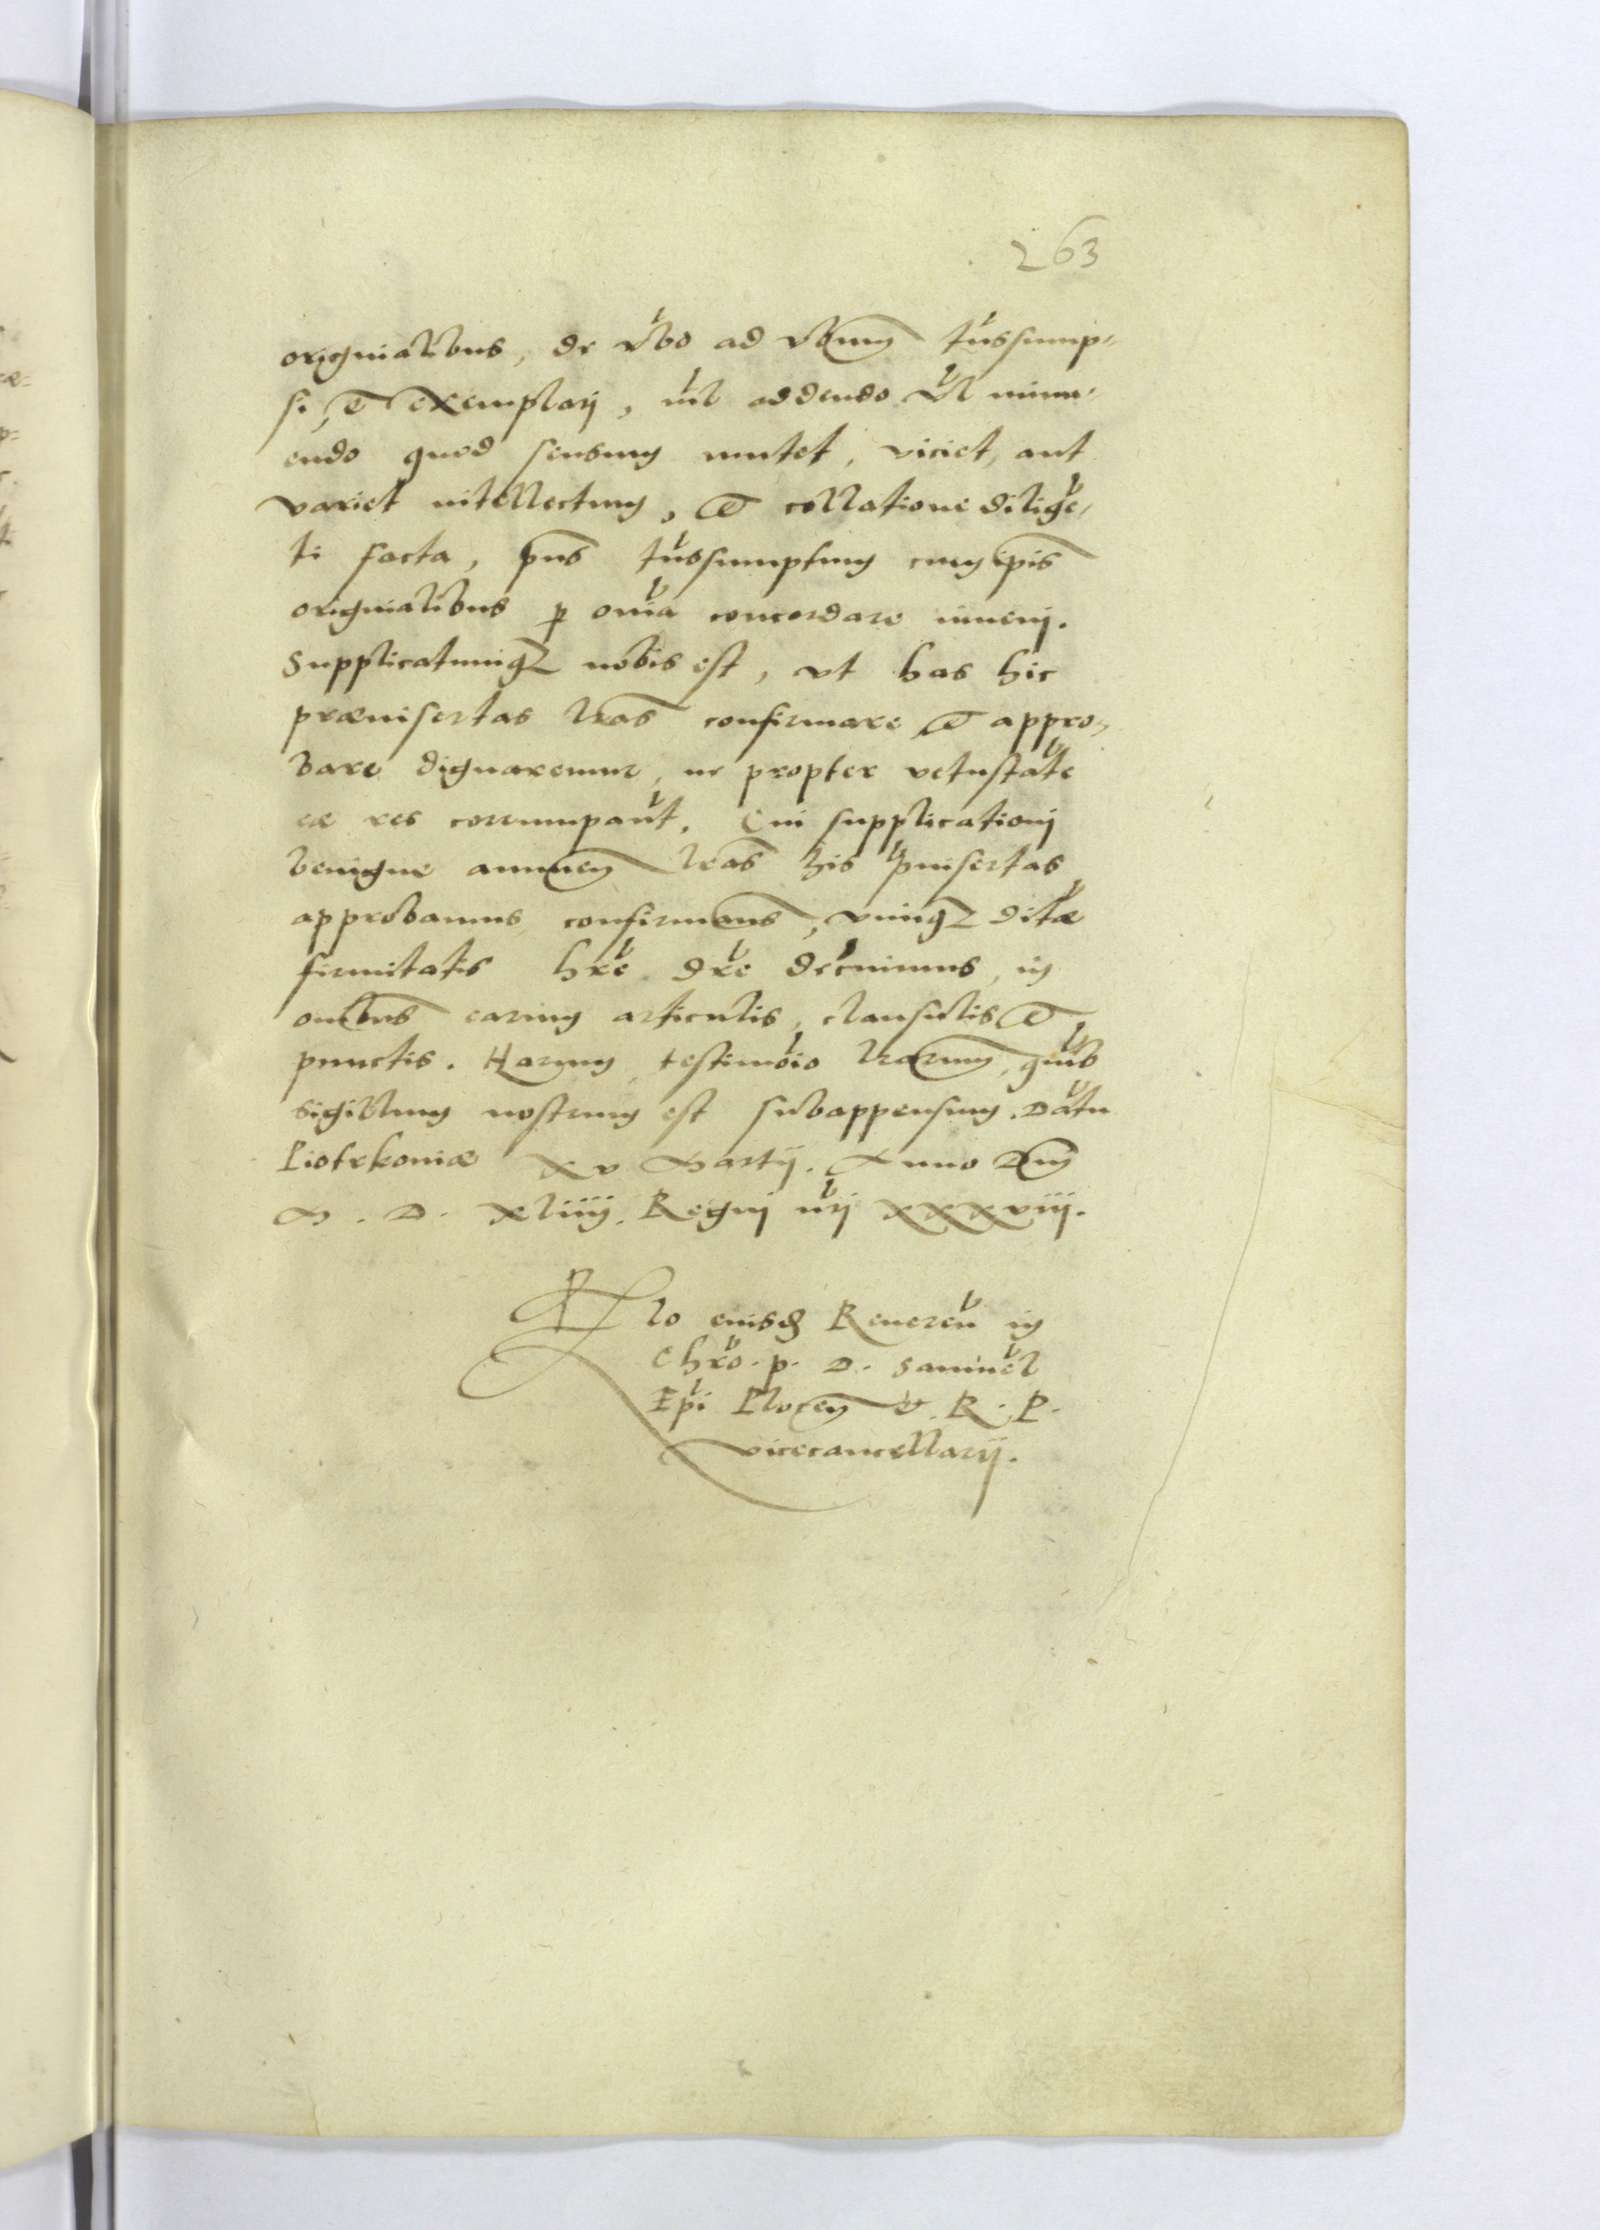 263
originalibus, de v̾bo ad vbum̅ tn̾ssump-
si, et exemplavj, nil addendo vl minu-
endo quod sensum mutet, viciet, aut
variet intellectum, et collatione diligē-
ti facta, pns̅ tn̾ssumptum cum ipis̅
originalibus ꝑ oīa concordare inuenj.
Supplicatumqꝫ nobis est, vt has hic
præinsertas lras̅ confirmare et appro-
bare dignaremur, ne propter vetustatē
eæ res corrumpant̾. Cui supplicationj
benigne annuen̅ lras̅ his p̅insertas
approbamus confirmams̅, vimqꝫ ditæ̅
firmitatis hrē drē dec̾nimus, in
omibus̅ earum articulis, clausulis et
punctis. Harum testimōio lrarum̅, quib̾
sigillum nostrum est subappensum. Datū
Piotrkoniæ xv Martij. Anno Dnj̅
M. D. xliiij. Regnj nrj̅ xxxviij.
Rlo eiusdꝫ Reueren̄ in
Chrō. p. D. Samuēl
Epi̅ Plocen̅ et. R. P.
vicecancellarij.